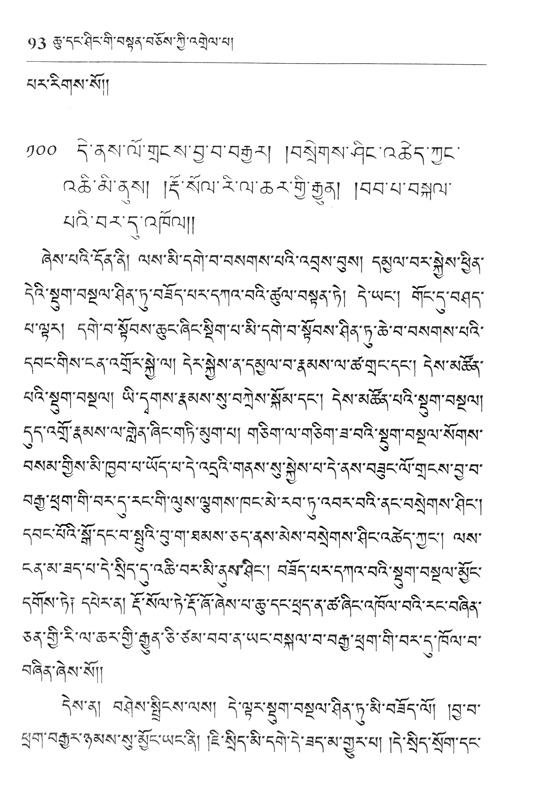 93 ཆུ་དང་ཤིང་གི་བསྟན་བཅོས་ཀྱི་འགྲེལ་པ།
པར་རིགས་སོ།།
༡༠༠ དེ་ནས་ལོ་གྲངས་བྱ་བ་བརྒྱར། །བསྲེགས་ཤིང་འཚེད་ཀྱང་
འཆི་མི་ནུས། །རྡོ་སོལ་རི་ལ་ཆར་གྱི་རྒྱུན། །བབ་པ་བསྐལ་
པའི་བར་དུ་འཁོལ།།
ཞེས་པའི་དོན་ནི། ལས་མི་དགེ་བ་བསགས་པའི་འབྲས་བུས། དམྱལ་བར་སྐྱེས་ཕྱིན་
དེའི་སྡུག་བསྔལ་ཤིན་ཏུ་བཟོད་པར་དཀའ་བའི་ཚུལ་བསྟན་ཏེ། དེ་ཡང་། གོང་དུ་བཤད་
པ་ལྟར། དགེ་བ་སྟོབས་ཆུང་ཞིང་སྡིག་པ་མི་དགེ་བ་སྟོབས་ཤིན་ཏུ་ཆེ་བ་བསགས་པའི་
དབང་གིས་ངན་འགྲོར་སྐྱེ་ལ། དེར་སྐྱེས་ན་དམྱལ་བ་རྣམས་ལ་ཚ་གྲང་དང་། དེས་མཚོན་
པའི་སྡུག་བསྔལ། ཡི་དྭགས་རྣམས་སུ་བཀྲེས་སྐོམ་དང་། དེས་མཚོན་པའི་སྡུག་བསྔལ།
དུད་འགྲོ་རྣམས་ལ་གླེན་ཞིང་གཏི་མུག་པ། གཅིག་ལ་གཅིག་ཟ་བའི་སྡུག་བསྔལ་སོགས་
བསམ་གྱིས་མི་ཁྱབ་པ་ཡོད་པ་དེ་འདྲའི་གནས་སུ་སྐྱེས་པ་དེ་ནས་བཟུང་ལོ་གྲངས་བྱ་བ་
བརྒྱ་ཕྲག་གི་བར་དུ་རང་གི་ལུས་ལྕགས་ཁང་མེ་རབ་ཏུ་འབར་བའི་ནང་བསྲེགས་ཤིང་།
དབང་པོའི་སྒོ་དང་བ་སྤུའི་བུ་ག་ཐམས་ཅད་ནས་མེས་བསྲེགས་ཤིང་འཚེད་ཀྱང་། ལས་
ངན་མ་ཟད་པ་དེ་སྲིད་དུ་འཆི་བར་མི་ནུས་ཤིང་། བཟོད་པར་དཀའ་བའི་སྡུག་བསྔལ་མྱོང་
དགོས་ཏེ། དཔེར་ན། རྡོ་སོལ་ཏེ་རྡོ་ཞོ་ཞེས་པ་ཆུ་དང་ཕྲད་ན་ཚ་ཞིང་འཁོལ་བའི་རང་བཞིན་
ཅན་གྱི་རི་ལ་ཆར་གྱི་རྒྱུན་ཅི་ཙམ་བབ་ན་ཡང་བསྐལ་བ་བརྒྱ་ཕྲག་གི་བར་དུ་ཁོལ་བ་
བཞིན་ཞེས་སོ།།
དེས་ན། བཤེས་སྤྲིངས་ལས། དེ་ལྟར་སྡུག་བསྔལ་ཤིན་ཏུ་མི་བཟོད་ལོ། །བྱ་བ་
ཕྲག་བརྒྱར་ཉམས་སུ་མྱོང་ཡང་ནི། །ཇི་སྲིད་མི་དགེ་དེ་ཟད་མ་གྱུར་པ། །དེ་སྲིད་སྲོག་དང་